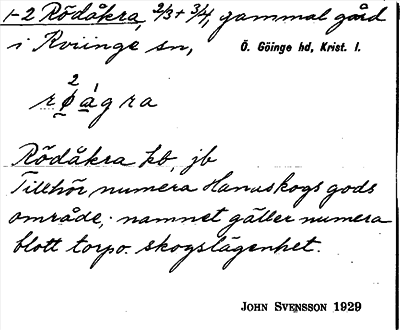 1-2 Rödåkra, 2/3 + 3/4, gammal gård
i Kviinge sn, Ö. Göinge hd, Krist. l.
2
rø̱a̱gra
Rödåkra hb, jb
Tillhör numera Hanaskogs gods
område; namnet gäller numera
blott torpo. skogslägenhet.
JOHN SVENSSON 1929